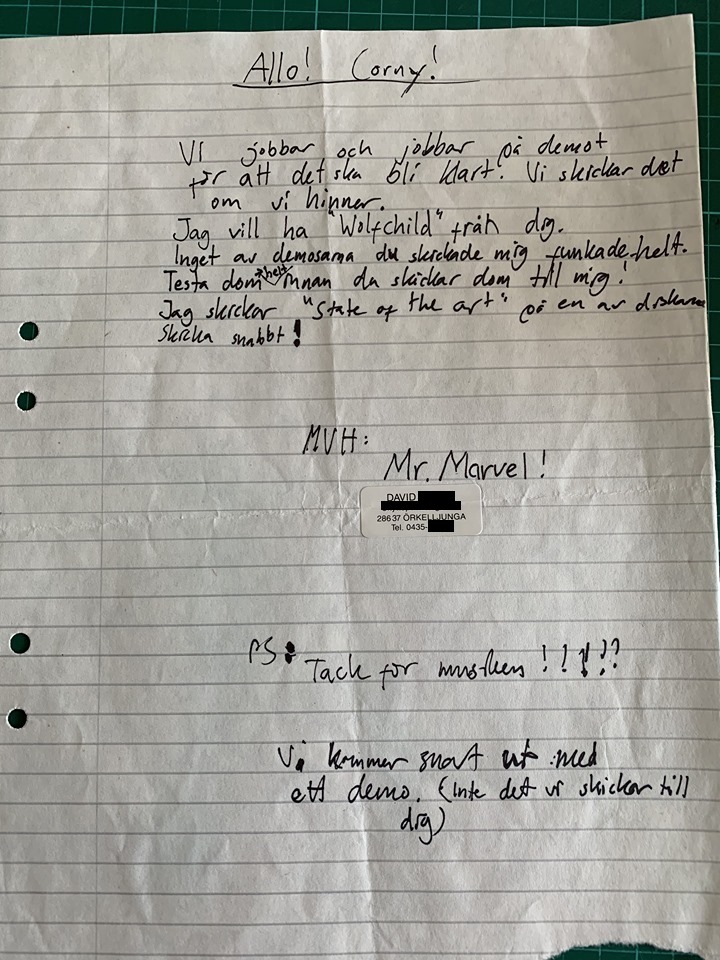 Allo! Corny!
Vi jobbar och jobbar på demot
för att det ska bli klart! Vi skickar det
om vi hinner.
Jag vill ha "Wolfchild" från dig.
Inget av demosarna du skickade mig funkade helt.
Testa dom helt innan du skickar dom till mig!
Jag skickar "State of the art" på en av diskarna
Skicka snabbt!
MVH:
Mr. Marvel!
DAVID
286 37 ÖRKELLJUNGA
Tel. 0435-
PS: Tack för musiken!!!!??
Vi kommer snart ut med
ett demo. (Inte det vi skickar till
dig)